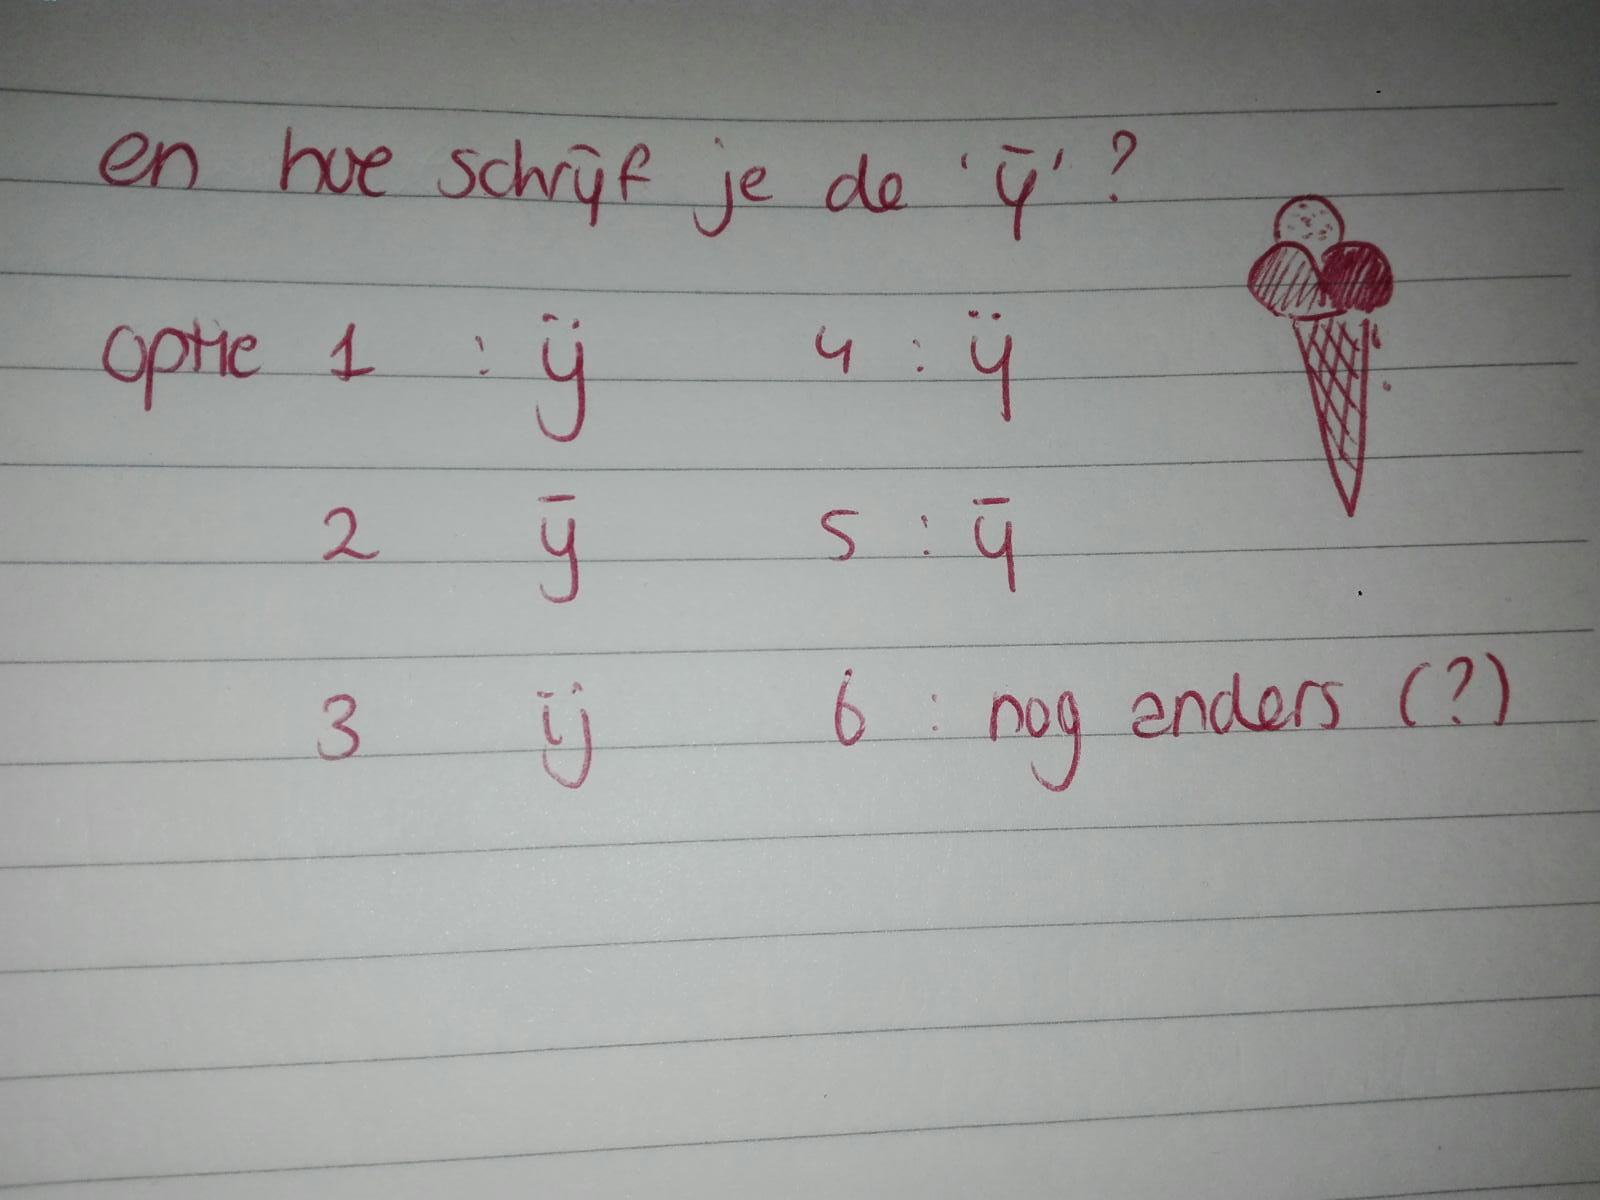 en hoe schrȳf je de 'ȳ' ?
optie 1 : ÿ 4 : ÿ
2 ȳ 5 : ȳ
3 ij 6 : nog anders (?)